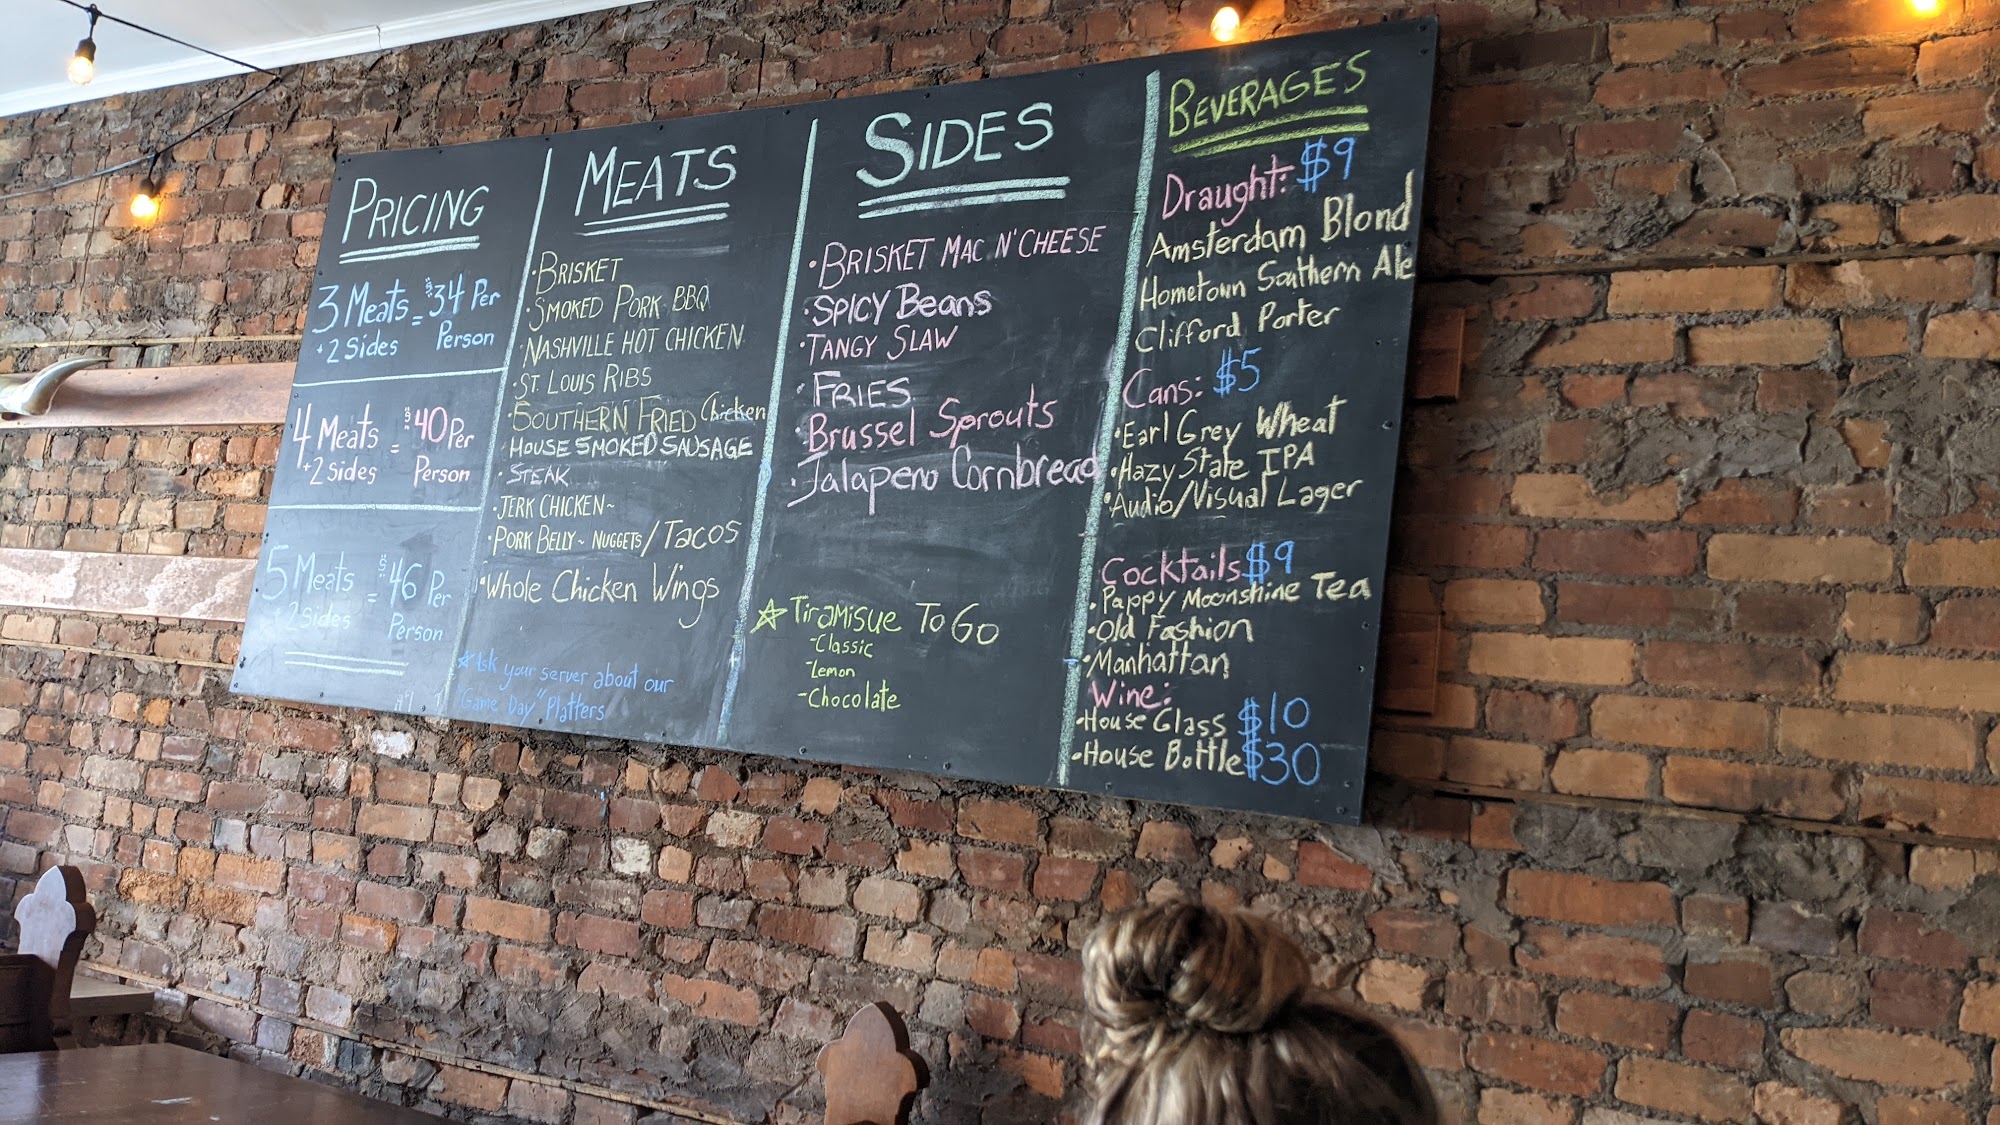 PRICING
3 Meats = $34 Per
+2 Sides Person
4 Meats = $40 Per
+2 sides Person
5 Meats = $46 Per
+2 sides Person
MEATS
·BRISKET
·SMOKED PORK BBQ
·NASHVILLE HOT CHICKEN
·ST. LOUIS RIBS
·SOUTHERN FRIED Chicken
·HOUSE SMOKED SAUSAGE
·STEAK
·JERK CHICKEN~
·PORK BELLY~ NUGGETS/TACOS
·Whole Chicken Wings
☆Ask your server about our
"Game Day" Platters
SIDES
·BRISKET MAC N' CHEESE
·SPICY Beans
·TANGY SLAW
·FRIES
·Brussel Sprouts
·Jalapeno Cornbread
☆TiramisUe To Go
-Classic
-Lemon
-Chocolate
BEVERAGES
Draught: $9
Amsterdam Blond
Hometown Southern Ale
Clifford Porter
Cans: $5
·Earl Grey Wheat
·Hazy State IPA
·Audio/Visual Lager
Cocktails $9
·Pappy Moonshine Tea
·Old Fashion
·Manhattan
Wine:
·House Glass $10
·House Bottle $30